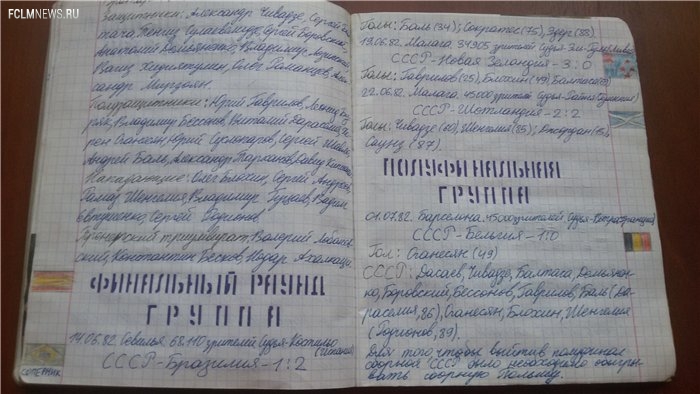 FCLMNEWS.RU
Защитники: Александр Чивадзе, Сергей
Тенгиз Сулаквелидзе, Сергей Боровский,
Анатолий Демьяненко, Владимир
Вагиз Хидиятуллин, Олег Романцев,
сандр Мирзоян.
Полузащитники: Юрий Гаврилов, Леонид Бу-
ряк, Владимир Бессонов, Виталий Дараселия, Хо-
рен Оганесян, Юрий Суслопаров, Сергей
Андрей Баль, Александр Тарханов, Давид Кипиани.
Нападающие: Олег Блохин, Сергей Андреев,
Рамаз Шенгелия, Владимир Гуцаев, Вадим
Евтушенко, Сергей Родионов.
Тренерский триумвират, Валерий Лобанов-
ский, Константин Бесков, Нодар Ахалкаци.
ФИНАЛЬНЫЙ РАУНД
ГРУППА
14.06.82. Севилья. 68.110 зрителей Судья-Кастильо
(Испания)
СССР-Бразилия-1:2
СОПЕРНИК
Голы: Баль (34); Сократес (75), Эдер (88)
19.06.82. Малага. 34905 зрителей Судья-
СССР-Новая Зеландия-3:0
Голы: Гаврилов (25), Блохин (49), Балтача (69)
22.06.82. Малага. 45000 зрителей Судья-
СССР-Шотландия-2:2
Голы: Чивадзе (60), Шенгелия (85); Джордан (15),
Саунэ (87).
ПОЛУФИНАЛЬНАЯ
ГРУППА
01.07.82. Барселона. 45000 зрителей Судья-
СССР-Бельгия-1:0
Гол: Оганесян (49)
СССР: Дасаев, Чивадзе, Балтача, Демьянен-
ко, Боровский, Бессонов, Гаврилов, Баль (Да-
раселия, 86), Оганесян, Блохин, Шенгелия
(Родионов, 89).
Для того чтобы выйти в полуфинал
сборной СССР было необходимо обыгры-
вать сборную Польши.